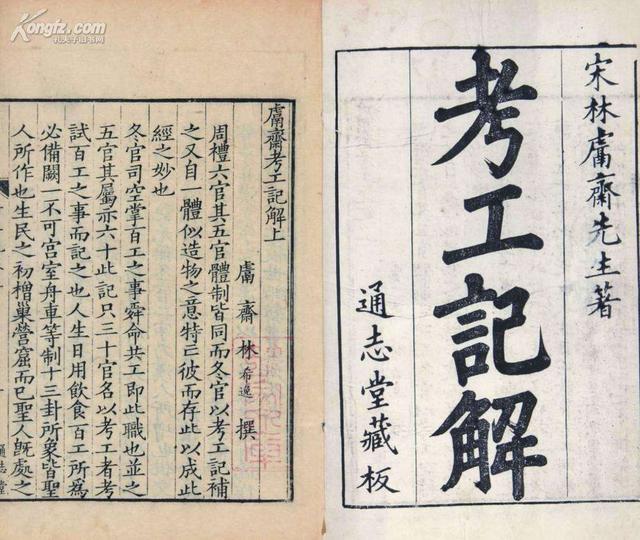 宋林鬳齋先生著
考工記解
通志堂藏板
鬳齋考工記解上
鬳齋林希逸撰
周禮六官其五官體制皆同而冬官以考工記補
之又自一體似造物之意特亡彼而存此以成此
經之妙也
冬官司空掌百工之事舜命共工即此職也並之
五官其屬亦六十此記只三十官名以考工者考
試百工之事而記之也人生日用飲食百工所為
必備闕一不可宮室舟車等制十三卦所象皆聖
人所作也生民之初橧巢營窟而已聖人既處之
通志堂
Kongfz.com
孔夫子旧书网